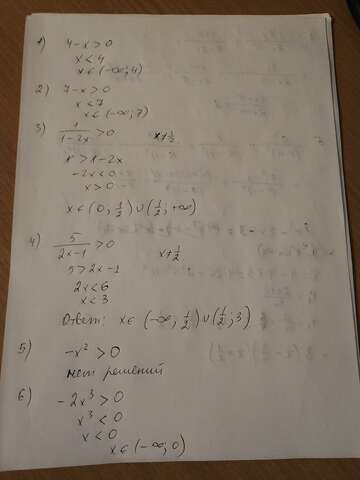 1) 4-x>0
x<4
x∈(-∞; 4)
2) 7-x>0
x<7
x∈(-∞; 7)
3) 1/(1-2x) >0 x≠1/2
1>1-2x
-2x<0
x>0
x∈(0; 1/2)∪(1/2; +∞)
4) 5/(2x-1) >0 x≠1/2
5>2x-1
2x<6
x<3
Ответ: x∈(-∞; 1/2)∪(1/2; 3)
5) -x²>0
нет решений
6) -2x³>0
x³<0
x<0
x∈(-∞; 0)